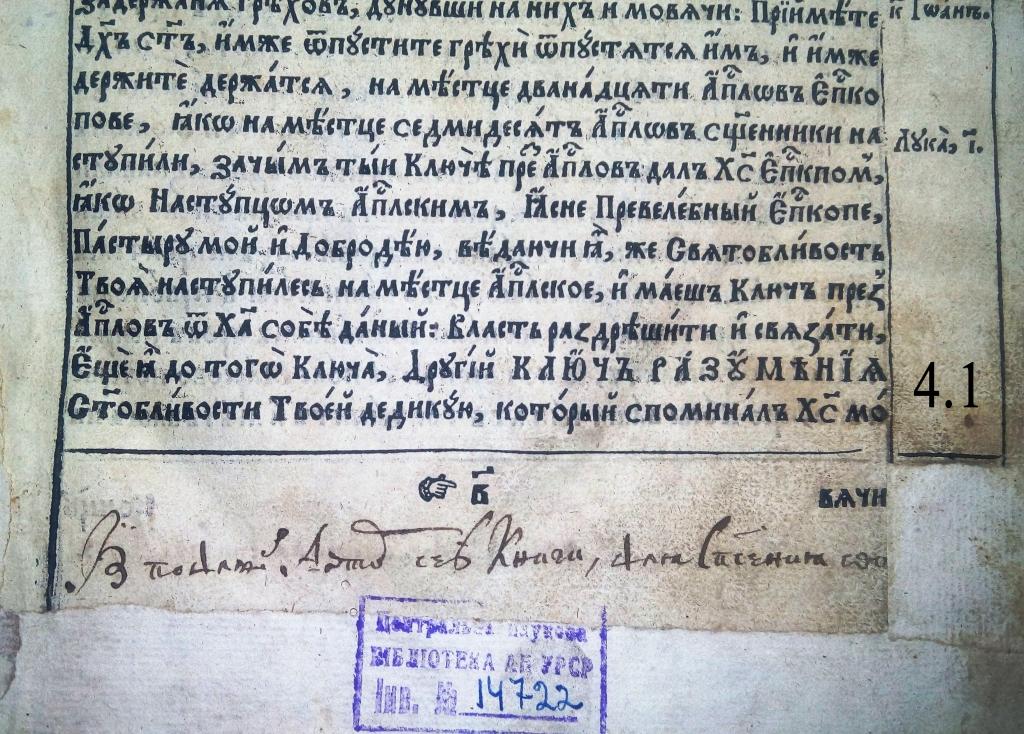 задержаня грѣховъ, дунувши на нихъ и мовячи: Прїймѣте
к҃ Іѡанъ.
Дх҃ъ ст҃ъ, и҆́мже ѿпустите грѣхѝ ѿпустятся и҆́мъ, и҆ и҆́мже
держитѐ держа́тся, на мѣстце двана́дцяти А҆пⷭ҇лѡвъ Е҆пⷭ҇ко
пове, ꙗ҆́кѡ на мѣ́стце седмидеся́тъ А҆пⷭ҇лѡвъ сщ҃енники на
Лука̀, і҃.
ступи́ли, зачы́мъ ты́и Ключѣ̀ пре́з А҆пⷭ҇ловъ дал Хс҃ Е҆пⷭ҇кпом,
ꙗ҆́кѡ Насту́пцѡмъ А҆пⷭ҇лскимъ, Ꙗ҆́сне Превеле́бный Е҆пⷭ҇копе,
Па́стыру мой и҆ Добродѣ́ю, вѣ́даючи ꙗ҆̀, же Святобли́вость
Твоя̀ наступи́лесь на мѣстце А҆пⷭ҇лское, и҆ ма́ешъ Ключъ през̾
А҆пⷭ҇ловъ ѿ Ха҃ собѣ̀ да́ный: Власть раздрѣши́ти и҆ связа́ти,
Е҆щѐ ꙗ҆̀ до тогѡ̀ Ключа̀, Другі́й КЛЮ́ЧЪ РА́ЗꙊМѢ́НЇѦ
Ст҃обли́вости Твое́й дедику́ю, кото́рый спомина́лъ Хс҃ мо́
4.1
☞ в҃
вѧчи
сев Книги,
Центральна наукова
БІБЛІОТЕКА АН УРСР
Інв. № 14722